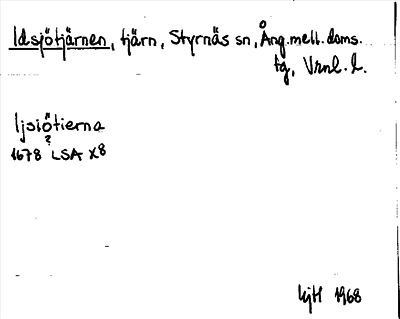 Idsjötjärnen, tjärn, Styrnäs sn, Ång.mell.doms.
tg, Vrnl. l.
ljsiötierna
?
1678 LSA X8
hjtl 1968